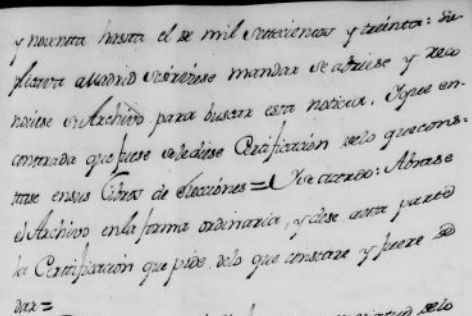 y noventa hasta el de mil setecientos y treinta: Su
plicava a Madrid se sirviese mandar se abriese y reco
nociese el Archivo para buscar esta noticia. Y que en-
contrada que fuese se le diese Certificación de lo que cons-
tase en sus Libros de Elecciones = Y se acordo: Abrase
el Archivo en la forma ordinaria, y dese a esta pared
la Certificación que pide de lo que constare y fuere de
dar =
de lo